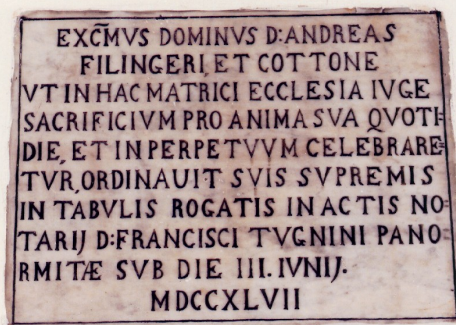 EXCM̃VS DOMINVS D:ANDREAS
FILINGERI, ET COTTONE
VT IN HAC MATRICI ECCLESIA IVGE
SACRIFICIVM PRO ANIMA SVA QVOTI=
DIE, ET IN PERPETVVM CELEBRARE=
TVR, ORDINAUIT SVIS SVPREMIS
IN TABVLIS ROGATIS IN ACTIS NO=
TARIJ D:FRANCISCI TVGNINI PANO=
RMITÆ SVB DIE III. IVNIJ.
MDCCXLVII